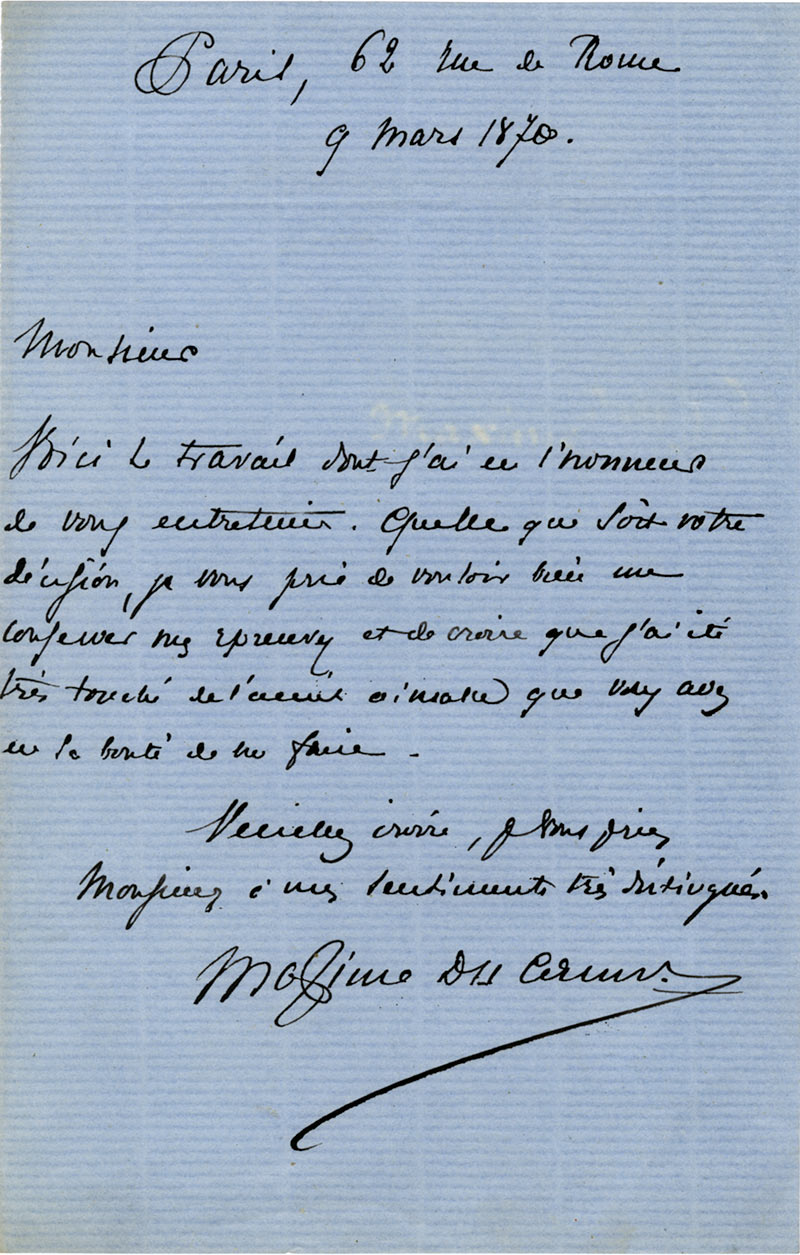 Paris, 62 rue de Rome
9 Mars 1870.
Monsieur
Voici le travail dont j'ai eu l'honneur
de vous entretenir. Quelle que soit votre
décision, je vous prie de vouloir bien me
conserver mes épreuves et de croire que j'ai été
très touché de l'accueil aimable que vous avez
eu la bonté de me faire.
Veuillez croire, je vous prie,
Monsieur à mes sentiments très distingués.
Maxime Du Camp.